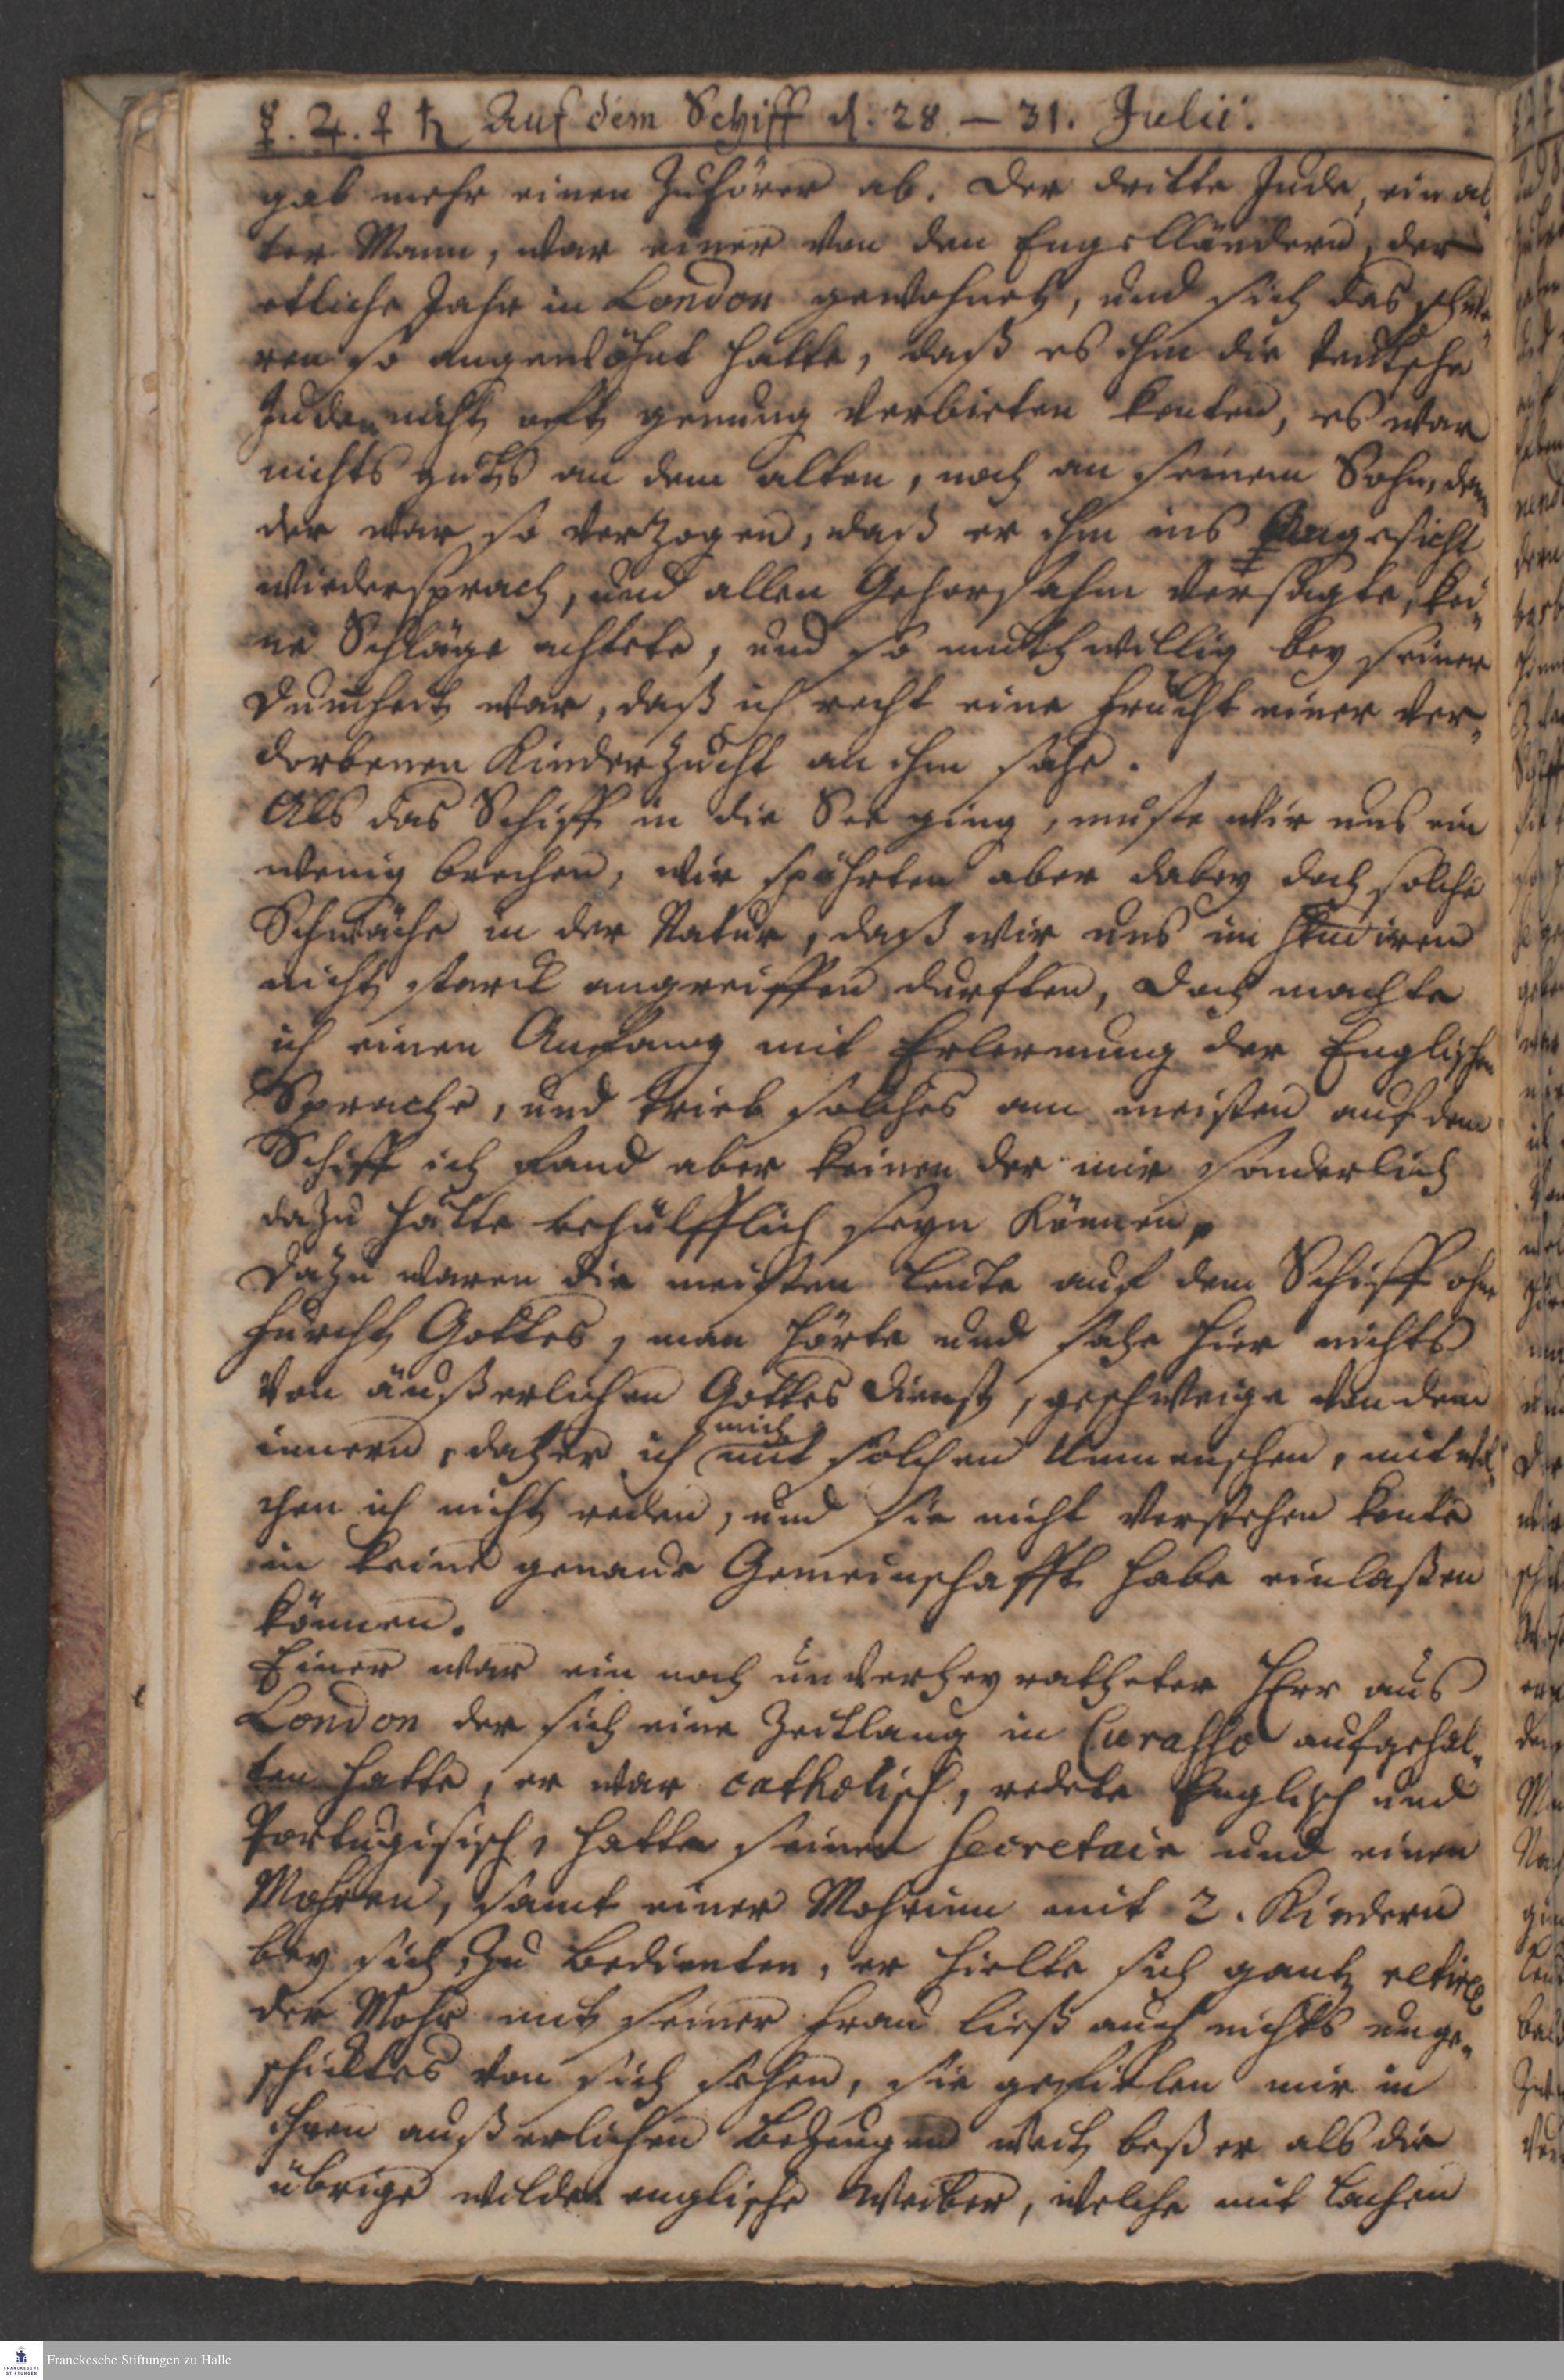 ☿. ♃. ♀ ♄ Auf dem Schiff d. 28 – 31. Julii.
gab mehr einen Zuhörer ab. Der dritte Jude, ein al-
ter Mann, war einer von den Engelländern, der
etliche Jahr in London gewohnet, und sich das schwe-
ren so angewöhnt hatte, daß es ihm die teutsche
Juden nicht oft genung verbieten konten, es war
nichts guts an dem alten, noch an seinem Sohn, denn
der war so verzogen, daß er ihm ins Angesicht
wiedersprach, und allen Gehorsahm versagte, kei-
ne Schläge achtete, und so muthwillig bey seiner
Dumheit war, daß ich recht eine Frucht einer ver-
dorbenen Kinderzucht an ihm sahe.
Als das Schiff in die See ging, muste wir uns ein
wenig brechen, wir spührten aber dabey doch solche
Schwäche in der Natur, daß wir uns im studiren
nicht starck angreiffen durften, Doch machte
ich einen Anfang mit Erlernung der Englischen
Sprache, und trieb solches am meisten auf dem
Schiff ich fand aber keinen der mir sonderlich
dazu hätte behülfflich seyn können,
Dazu waren die meisten Leute auf dem Schiff ohne
Furcht Gottes, man hörte und sahe hier nichts
von äußerlichen Gottes Dienst, geschweige von dem
innern, daher ich mich mit solchen Unmenschen, mit wel-
chen ich nicht reden, und sie nicht verstehen konte
in keine genaue Gemeinschafft habe einlaßen
können.
Einer war ein noch unverheyratheter Herr aus
London der sich eine Zeitlang in Curasso aufgehal-
ten hatte, er war catholisch, redete Englisch und
Portugisisch, hatte seinen Secretair und einen
Mohren, samt einer Mohrinn mit 2. Kindern
bey sich, zu Bedienten, er hielte sich gantz retiré
der Mohr mit seiner Frau ließ auch nichts unge-
schicktes von sich sehen, sie gefielen mir in
ihren äußerlichen Bezeugen weit beßer als die
übrige wilde englische Weiber, welche mit Lachen
Franckesche Stiftungen zu Halle